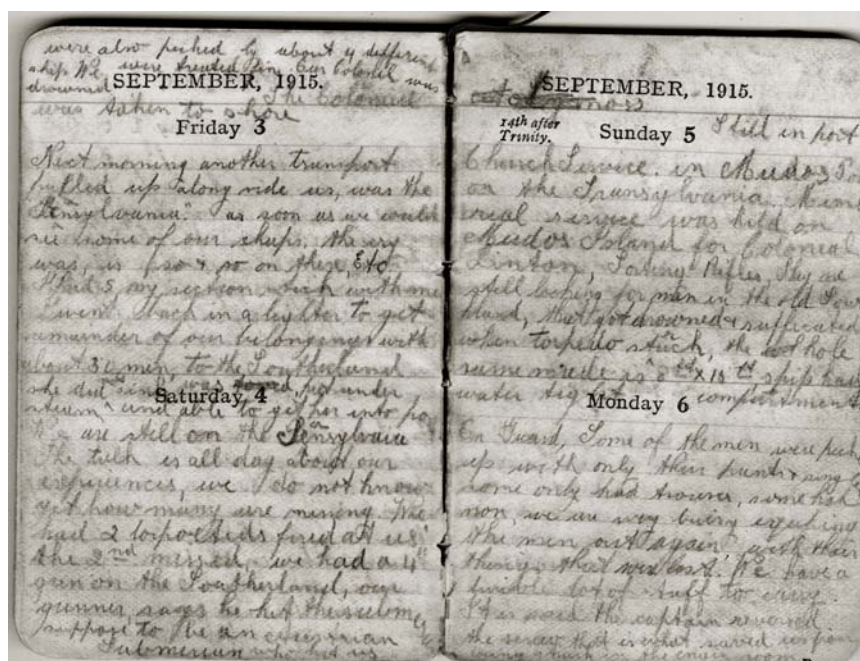 were also picked by about 4 different
ship. We were treated fine. Our Colonel was
drowned
SEPTEMBER, 1915.
The Colonel
was taken to shore
Friday 3
Next morning another transport
pulled up along side us, was the
"Pensylvania." as soon as we could
see some of our chaps, the cry
was, is so & so on there, Etc
I had 5 my section with me
I went back in a lighter to get
remainder of our belongings with
about 30 men, to the Southerland
she did sink, was under
Saturday 4
steam and able to get her into po
We are still on the Pensylvaia
The talk is all day about our
experiences, we do not know
yet how many are missing. We
had 2 torpoeteds fired at us
the 2nd missed, we had a 4"
gun on the Southerland, our
gunner, says he hit the subm
suppose to be an
Submerian who hit us
SEPTEMBER, 1915.
14th after
Trinity.
Sunday 5
Still in port
Church Service. in Mudos Po
on the Transylvania. Mem
rial service was held on
Mudos Island for Coloneal
Linton, They are
still looking for men in the old Sou
land, they got drowned & sufficated
when torpedo stuck, the whole
same made is x 18 ft ship had
water tight compartment
Monday 6
On Guard, Some of the men were pick
up with only their pants & sing
some only had trousers, some had
non, we are very busy equiping
the men out again, with their
things that were lost. We have a
lot of stuff to carry.
It is said the captain reversed
the screw that is what saved us from
being struck in the engine room